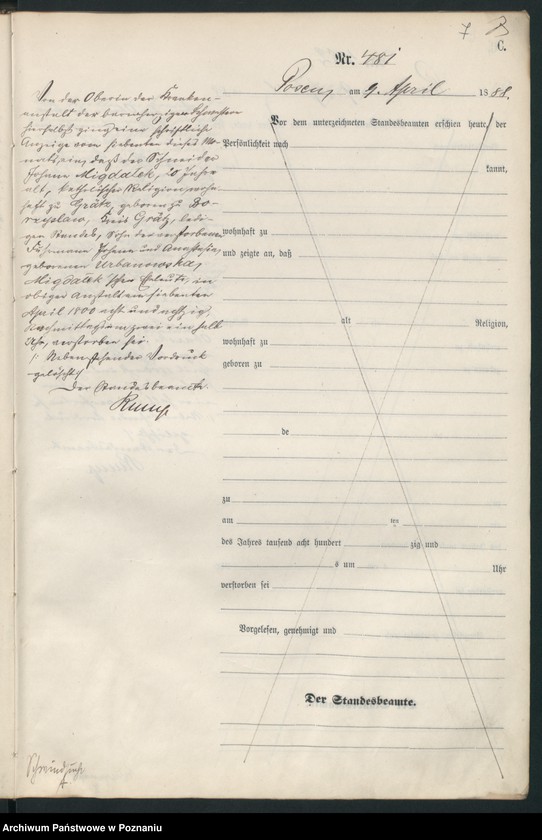 7
C.
Nr. 481
Posen, am 9. April 1888.
Von der Oberin der Kranken-
anstalt der barmherzigen Schwestern
hierselbst ging eine schriftliche
Anzeige vom siebenten dieses Mo-
nats ein, daß der Schneider
Johann Migdalek, Jahre
alt, katholischer Religion, wohn-
haft zu Grätz, geboren zu
Kreis Grätz, ledi-
gen Standes, Sohn der verstorbenen
Fuhrmann Johann und Anastasia,
geborenen Urbanowska,
Migdalek'schen Eheleute, in
obiger Anstalt am siebenten
April 1800 acht und achtzig,
Nachmittags um zwei ein halb
Uhr, verstorben sei.
Nebenstehender Vordruck
gelöscht.
Der Standesbeamte.
Vor dem unterzeichneten Standesbeamten erschien heute, der
Persönlichkeit nach
kannt,
wohnhaft zu
und zeigte an, daß
alt Religion,
wohnhaft zu
geboren zu
de
zu
am ten
des Jahres tausend acht hundert zig und
s um Uhr
verstorben sei
Vorgelesen, genehmigt und
Der Standesbeamte.
Archiwum Państwowe w Poznaniu